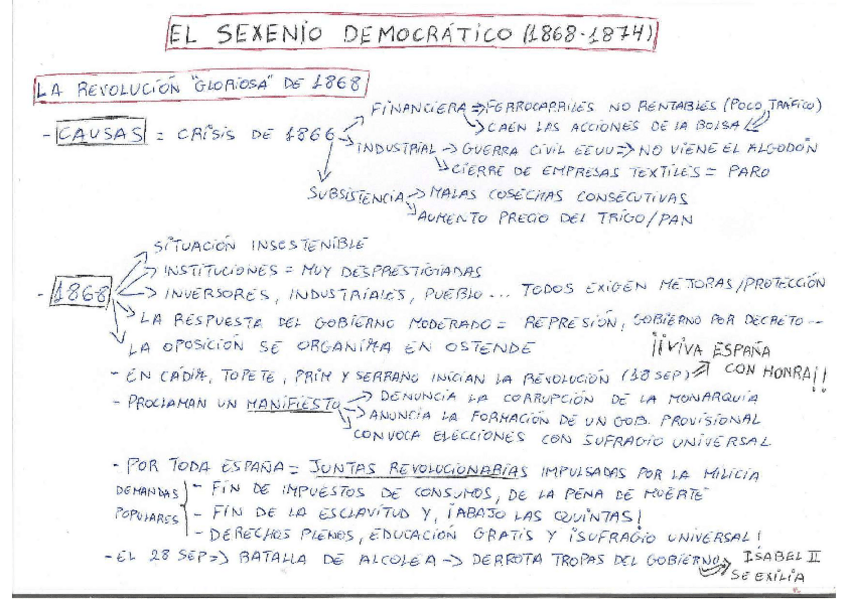 EL SEXENIO DEMOCRÁTICO (1868-1874)
LA REVOLUCIÓN "GLORIOSA" DE 1868
- CAUSAS = CRISIS DE 1866
FINANCIERA => FERROCARRILES NO RENTABLES (POCO TRÁFICO)
-> CAEN LAS ACCIONES DE LA BOLSA
INDUSTRIAL -> GUERRA CIVIL EEUU => NO VIENE EL ALGODÓN
-> CIERRE DE EMPRESAS TEXTILES = PARO
SUBSISTENCIA -> MALAS COSECHAS CONSECUTIVAS
-> AUMENTO PRECIO DEL TRIGO/PAN
- 1868
SITUACIÓN INSOSTENIBLE
-> INSTITUCIONES = MUY DESPRESTIGIADAS
-> INVERSORES, INDUSTRIALES, PUEBLO... TODOS EXIGEN MEJORAS/PROTECCIÓN
-> LA RESPUESTA DEL GOBIERNO MODERADO = REPRESIÓN, GOBIERNO POR DECRETO...
LA OPOSICIÓN SE ORGANIZA EN OSTENDE
- EN CÁDIZ, TOPETE, PRIM Y SERRANO INICIAN LA REVOLUCIÓN (18 SEP) -> ¡¡VIVA ESPAÑA
CON HONRA!!
- PROCLAMAN UN MANIFIESTO -> DENUNCIA LA CORRUPCIÓN DE LA MONARQUÍA
-> ANUNCIA LA FORMACIÓN DE UN GOB. PROVISIONAL
CONVOCA ELECCIONES CON SUFRAGIO UNIVERSAL
- POR TODA ESPAÑA = JUNTAS REVOLUCIONARIAS IMPULSADAS POR LA MILICIA
DEMANDAS POPULARES
- FIN DE IMPUESTOS DE CONSUMOS, DE LA PENA DE MUERTE
- FIN DE LA ESCLAVITUD Y, ¡ABAJO LAS QUINTAS!
- DERECHOS PLENOS, EDUCACIÓN GRATIS Y ¡SUFRAGIO UNIVERSAL!
- EL 28 SEP => BATALLA DE ALCOLEA -> DERROTA TROPAS DEL GOBIERNO -> ISABEL II
SE EXILIA